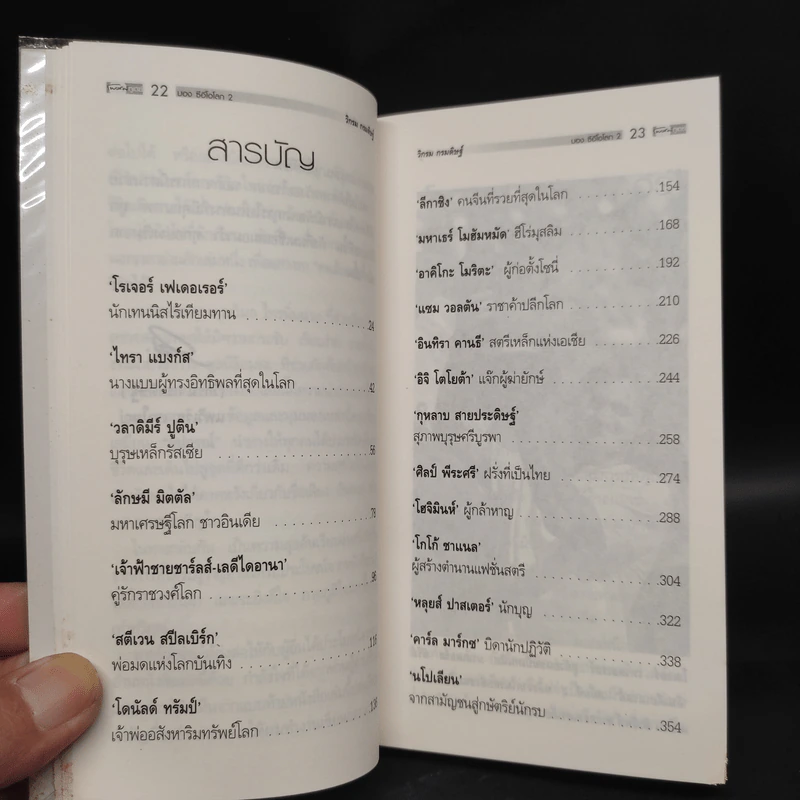 22 มอง ซีอีโอโลก 2
วิกรม กรมดิษฐ์
สารบัญ
'โรเจอร์ เฟเดอเรอร์'
นักเทนนิสไร้เทียมทาน 24
'ไทรา แบงก์ส'
นางแบบผู้ทรงอิทธิพลที่สุดในโลก 42
'วลาดิมีร์ ปูติน'
บุรุษเหล็กรัสเซีย 56
'ลักษมี มิตตัล'
มหาเศรษฐีโลก ชาวอินเดีย 78
'เจ้าฟ้าชายชาร์ลส์-เลดีไดอานา'
คู่รักราชวงศ์โลก 96
'สตีเวน สปีลเบิร์ก'
พ่อมดแห่งโลกบันเทิง 116
'โดนัลด์ ทรัมป์'
เจ้าพ่ออสังหาริมทรัพย์โลก
วิกรม กรมดิษฐ์
มอง ซีอีโอโลก 2 23
'ลีกาชิง' คนจีนที่รวยที่สุดในโลก 154
'มหาเธร์ โมฮัมหมัด' ฮีโร่มุสลิม 168
'อาคิโกะ โมริตะ' ผู้ก่อตั้งโซนี่ 192
'แซม วอลตัน' ราชาค้าปลีกโลก 210
'อินทิรา คานธี' สตรีเหล็กแห่งเอเชีย 226
'อิจิ โตโยต้า' แจ๊กผู้ฆ่ายักษ์ 244
'กุหลาบ สายประดิษฐ์'
สุภาพบุรุษศรีบูรพา 258
'ศิลป์ พีระศรี' ฝรั่งที่เป็นไทย 274
'โฮจิมินห์' ผู้กล้าหาญ 288
'โกโก้ ชาแนล'
ผู้สร้างตำนานแฟชั่นสตรี 304
'หลุยส์ ปาสเตอร์' นักบุญ 322
'คาร์ล มาร์กซ' บิดานักปฏิวัติ 338
'นโปเลียน'
จากสามัญชนสู่กษัตริย์นักรบ 354